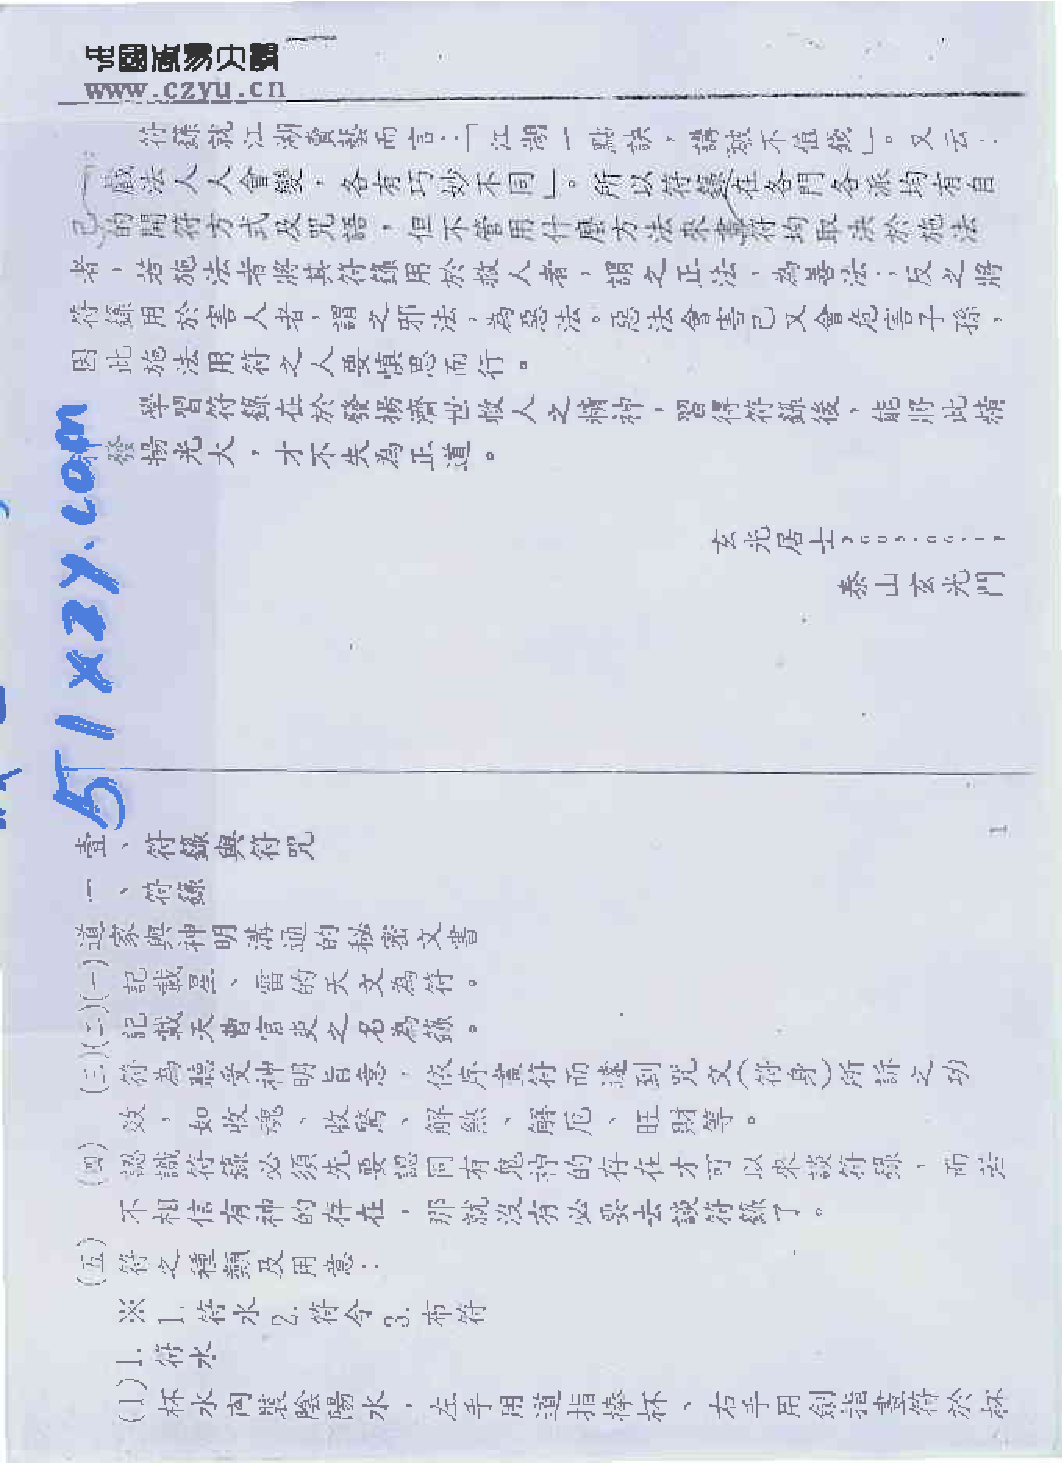 www.czyu.cn
符籙就江湖實務而言:「江湖一點訣,講破不值錢」。又云:
「戲法人人會變,各有巧妙不同」。所以符籙在各門各派均有自
己的開符方式及咒語,但不管用什麼方法來畫符均取決於施法
者,若施法者將其符籙用於救人者,謂之正法,為善法;反之將
符籙用於害人者,謂之邪法,為惡法。惡法會害己又會危害子孫,
因此施法用符之人要慎思而行。
學習符籙在於發揚濟世救人之精神,習得符籙後,能將此精
神發揚光大,才不失為正道。
玄光居士
泰山玄光門
51xzy.com
1
壹、符籙與符咒
一、符籙
道家與神明溝通的秘密文書
(一)記載星、雷的天文為符。
(二)記載天曹官吏之名為籙。
(三)符為聽受神明旨意,依序畫符而達到咒文(符身)所許之功
效,如收魂、收驚、解煞、解厄、旺財等。
(四)認識符籙必須先要認同有鬼神的存在才可以來談符籙,而若
不相信有神的存在,那就沒有必要去談符籙了。
(五)符之種類及用意:
※1.符水2.符令3.布符
1.符水
(1)杯水內裝陰陽水,左手用道指捧杯、右手用劍指畫符於杯